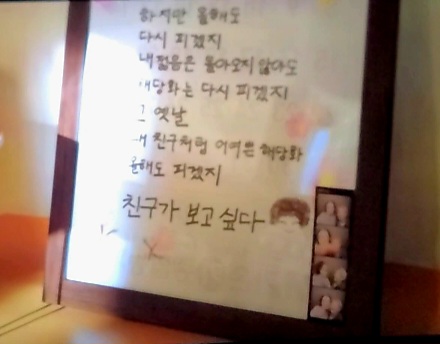 하지만 올해도
다시 피겠지
내 젊음은 돌아오지 않아도
해당화는 다시 피겠지
그 옛날
내 친구처럼 어여쁜 해당화
올해도 피겠지
친구가 보고 싶다